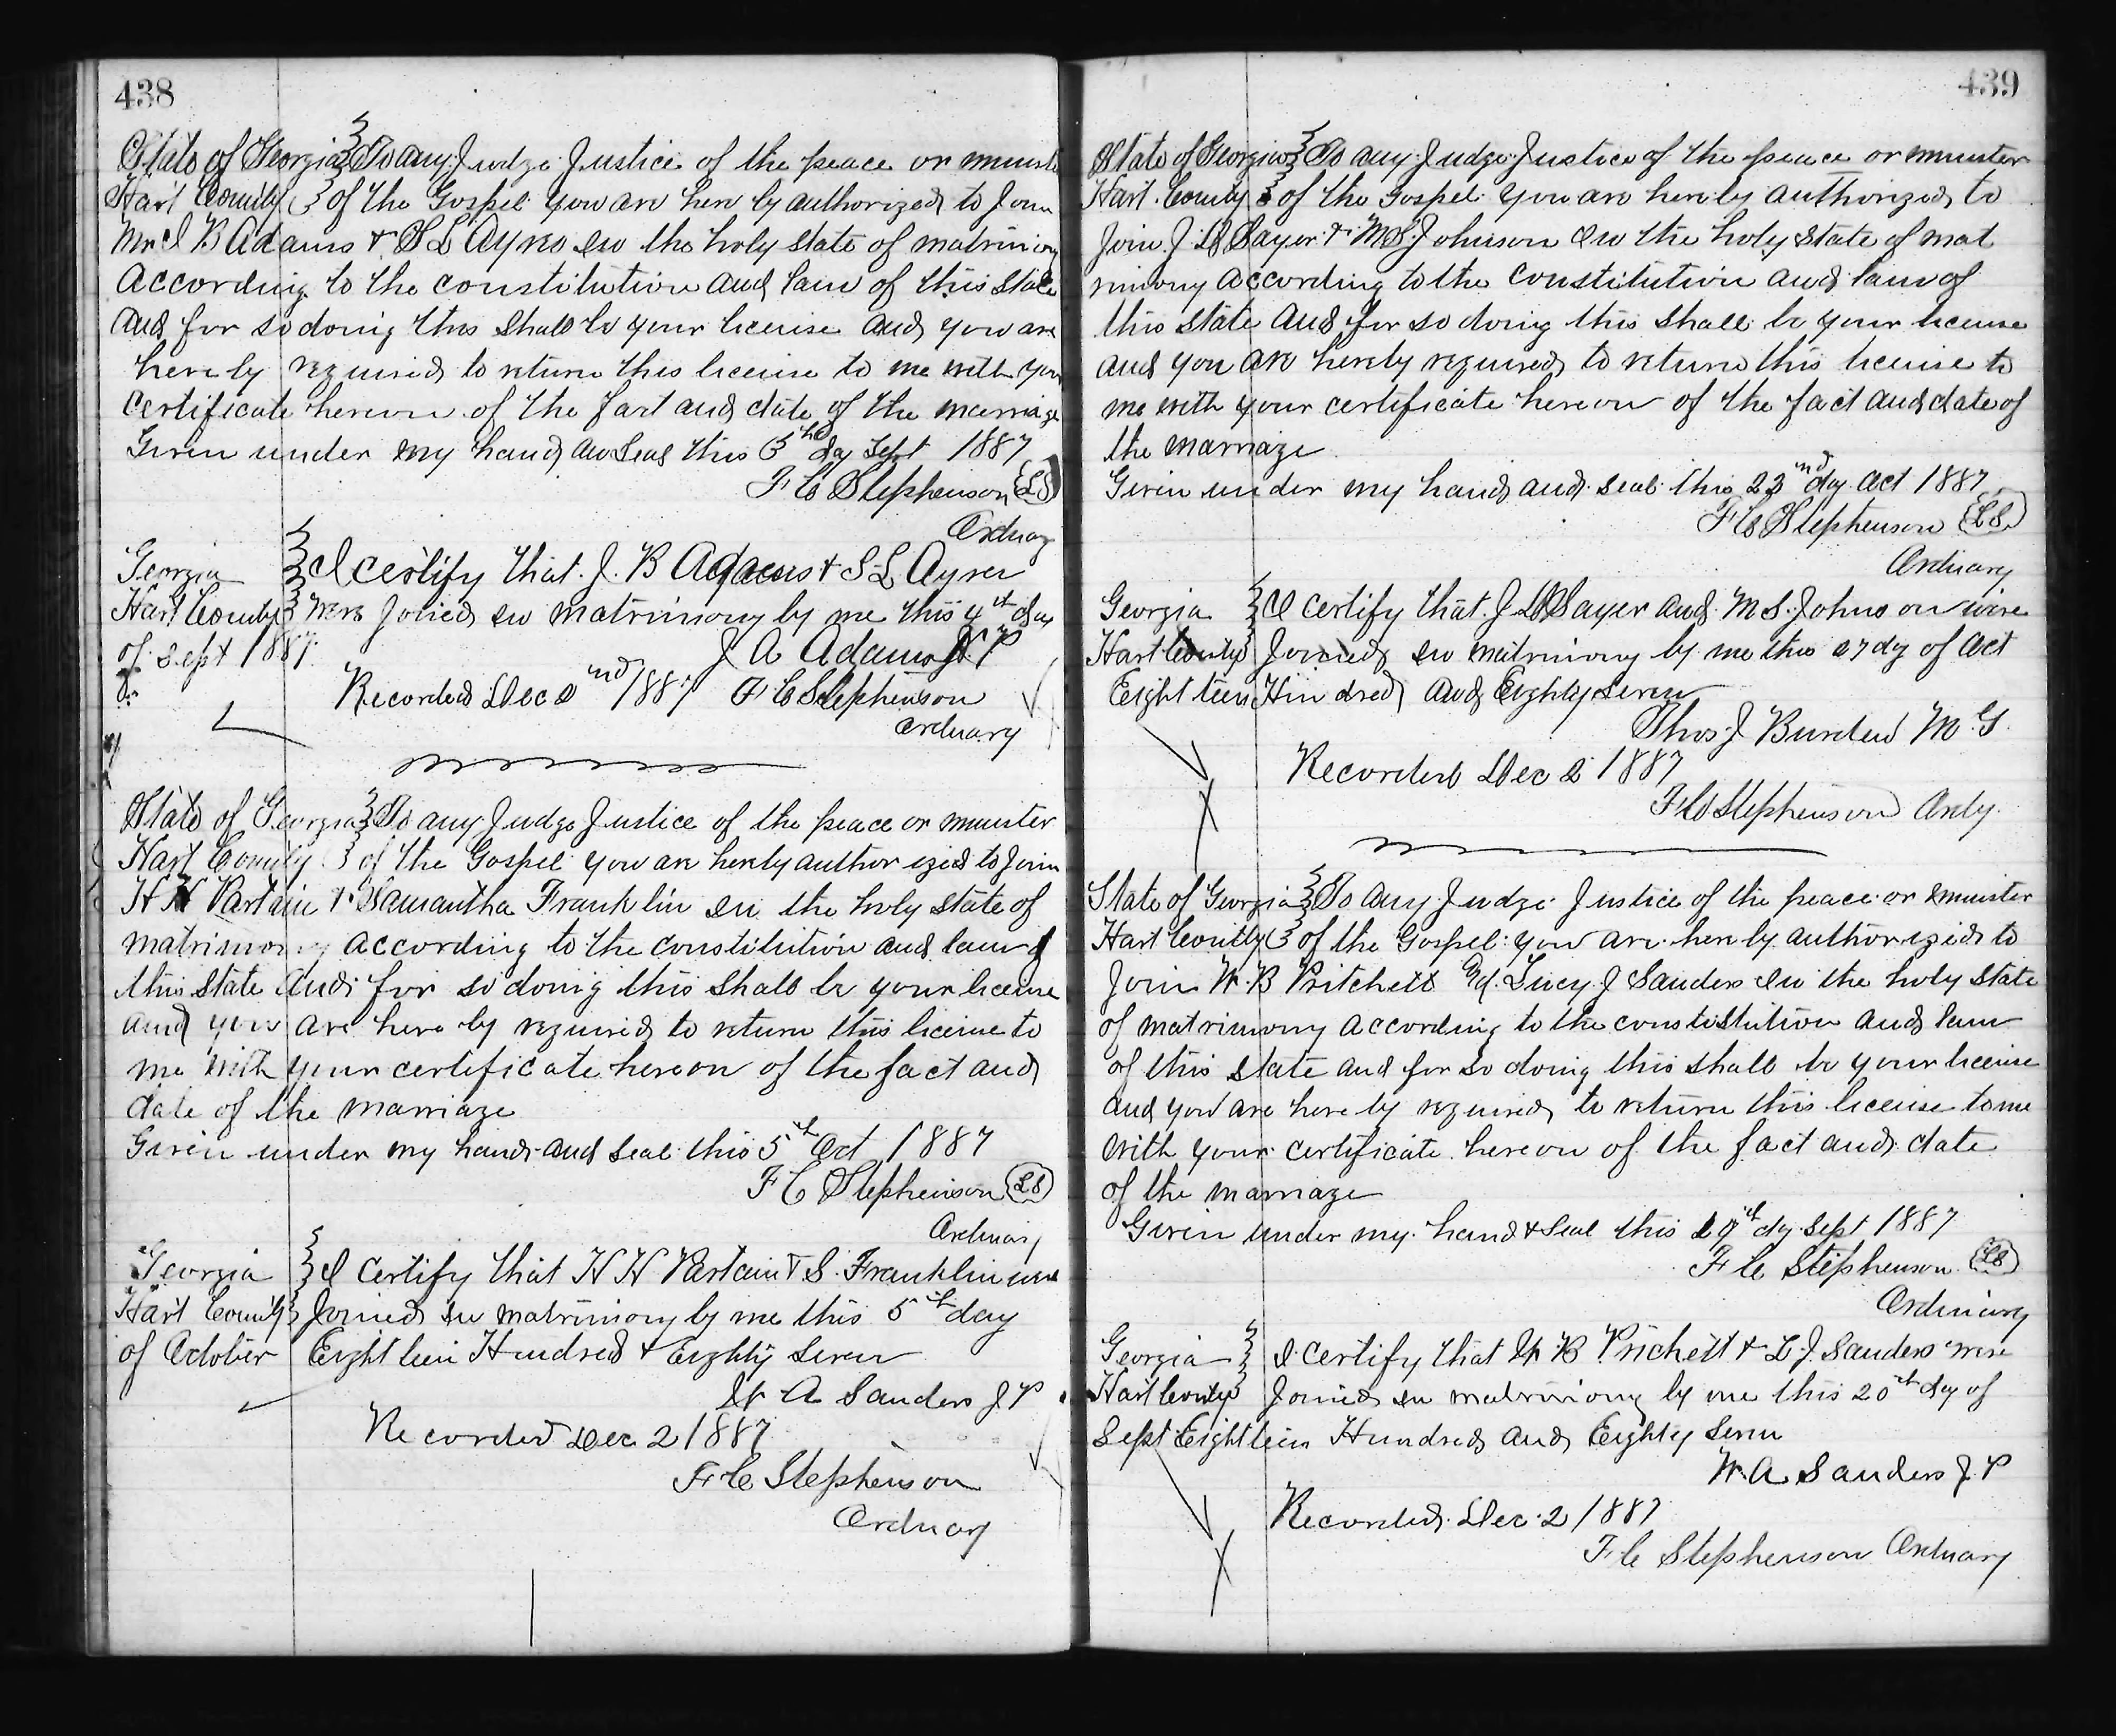 438
State of Georgia } To any Judge Justice of the peace or minist
Hart County } of the Gospel you are here by authorized to Join
Mr J B Adams & S L Ayres in the holy state of matrimony
According to the constitution and laws of this state
and for so doing this shall be your license and you are
hereby required to return this license to me with your
certificate hereon of the fact and date of the marriage
Given under my hand an seal this 3rd day Sept 1887
F C Stephenson LS
Ordinary
Georgia } I certify that J. B Adams & S L Ayres
Hart County } were Joined in matrimony by me this 4th day
of Sept 1887. J A Adams J P
Recorded Dec 2nd 1887 F C Stephenson
Ordinary
State of Georgia } To any Judge Justice of the peace or minister
Hart County } of the Gospel you are hereby author ized to Join
H H Partain & Samantha Franklin in the holy state of
matrimony according to the constitution and laws of
this state and for so doing this shall be your license
and you are here by required to return this license to
me with your certificate hereon of the fact and
date of the marriage
Given under my hand and seal this 5th Oct 1887
F C Stephenson LS
Ordinary
Georgia } I certify that H H Partain & S. Franklin were
Hart County } Joined in matrimony by me this 5th day
of October Eighteen Hundred & Eighty Seven
W A Sanders J P
Recorded Dec 2 1887
F C Stephenson
Ordinary
439
State of Georgia } To any Judge Justice of the peace or minister
Hart County } of the Gospel you are hereby authorized to
Join J. D Sayer & M S Johnson in the holy state of mat
rimony according to the constitution and laws of
this state and for so doing this shall be your license
and you are hereby required to return this license to
me with your certificate hereon of the fact and date of
the marriage
Given under my hand and seal this 22nd day Oct 1887
F C Stephenson LS
Ordinary
Georgia } I certify that J D Sayer and M S. Johnson wire
Hart County } Joined in matrimony by me this 27 dy of Oct
Eighteen Hundred and Eighty Seven
Thos J Burden M. G.
Recorded Dec 2 1887
F C Stephenson Ordy.
State of Georgia } To any Judge Justice of the peace or minister
Hart County } of the Gospel you are hereby authorized to
Join W. B Pritchett Lucy J Sanders in the holy state
of matrimony according to the constitution and laws
of this state and for so doing this shall be your license
and you are here by required to return this license to me
with your certificate hereon of the fact and date
of the marriage
Given under my hand & seal this 19th dy Sept 1887
F C Stephenson LS
Ordinary
Georgia } I certify that W B Prichett & L. J. Sanders were
Hart County } Joined in matrimony by me this 20th day of
Sept Eighteen Hundred and Eighty Seven
W. A Sanders J. P
Recorded Dec. 2 1887
F C Stephenson Ordinary